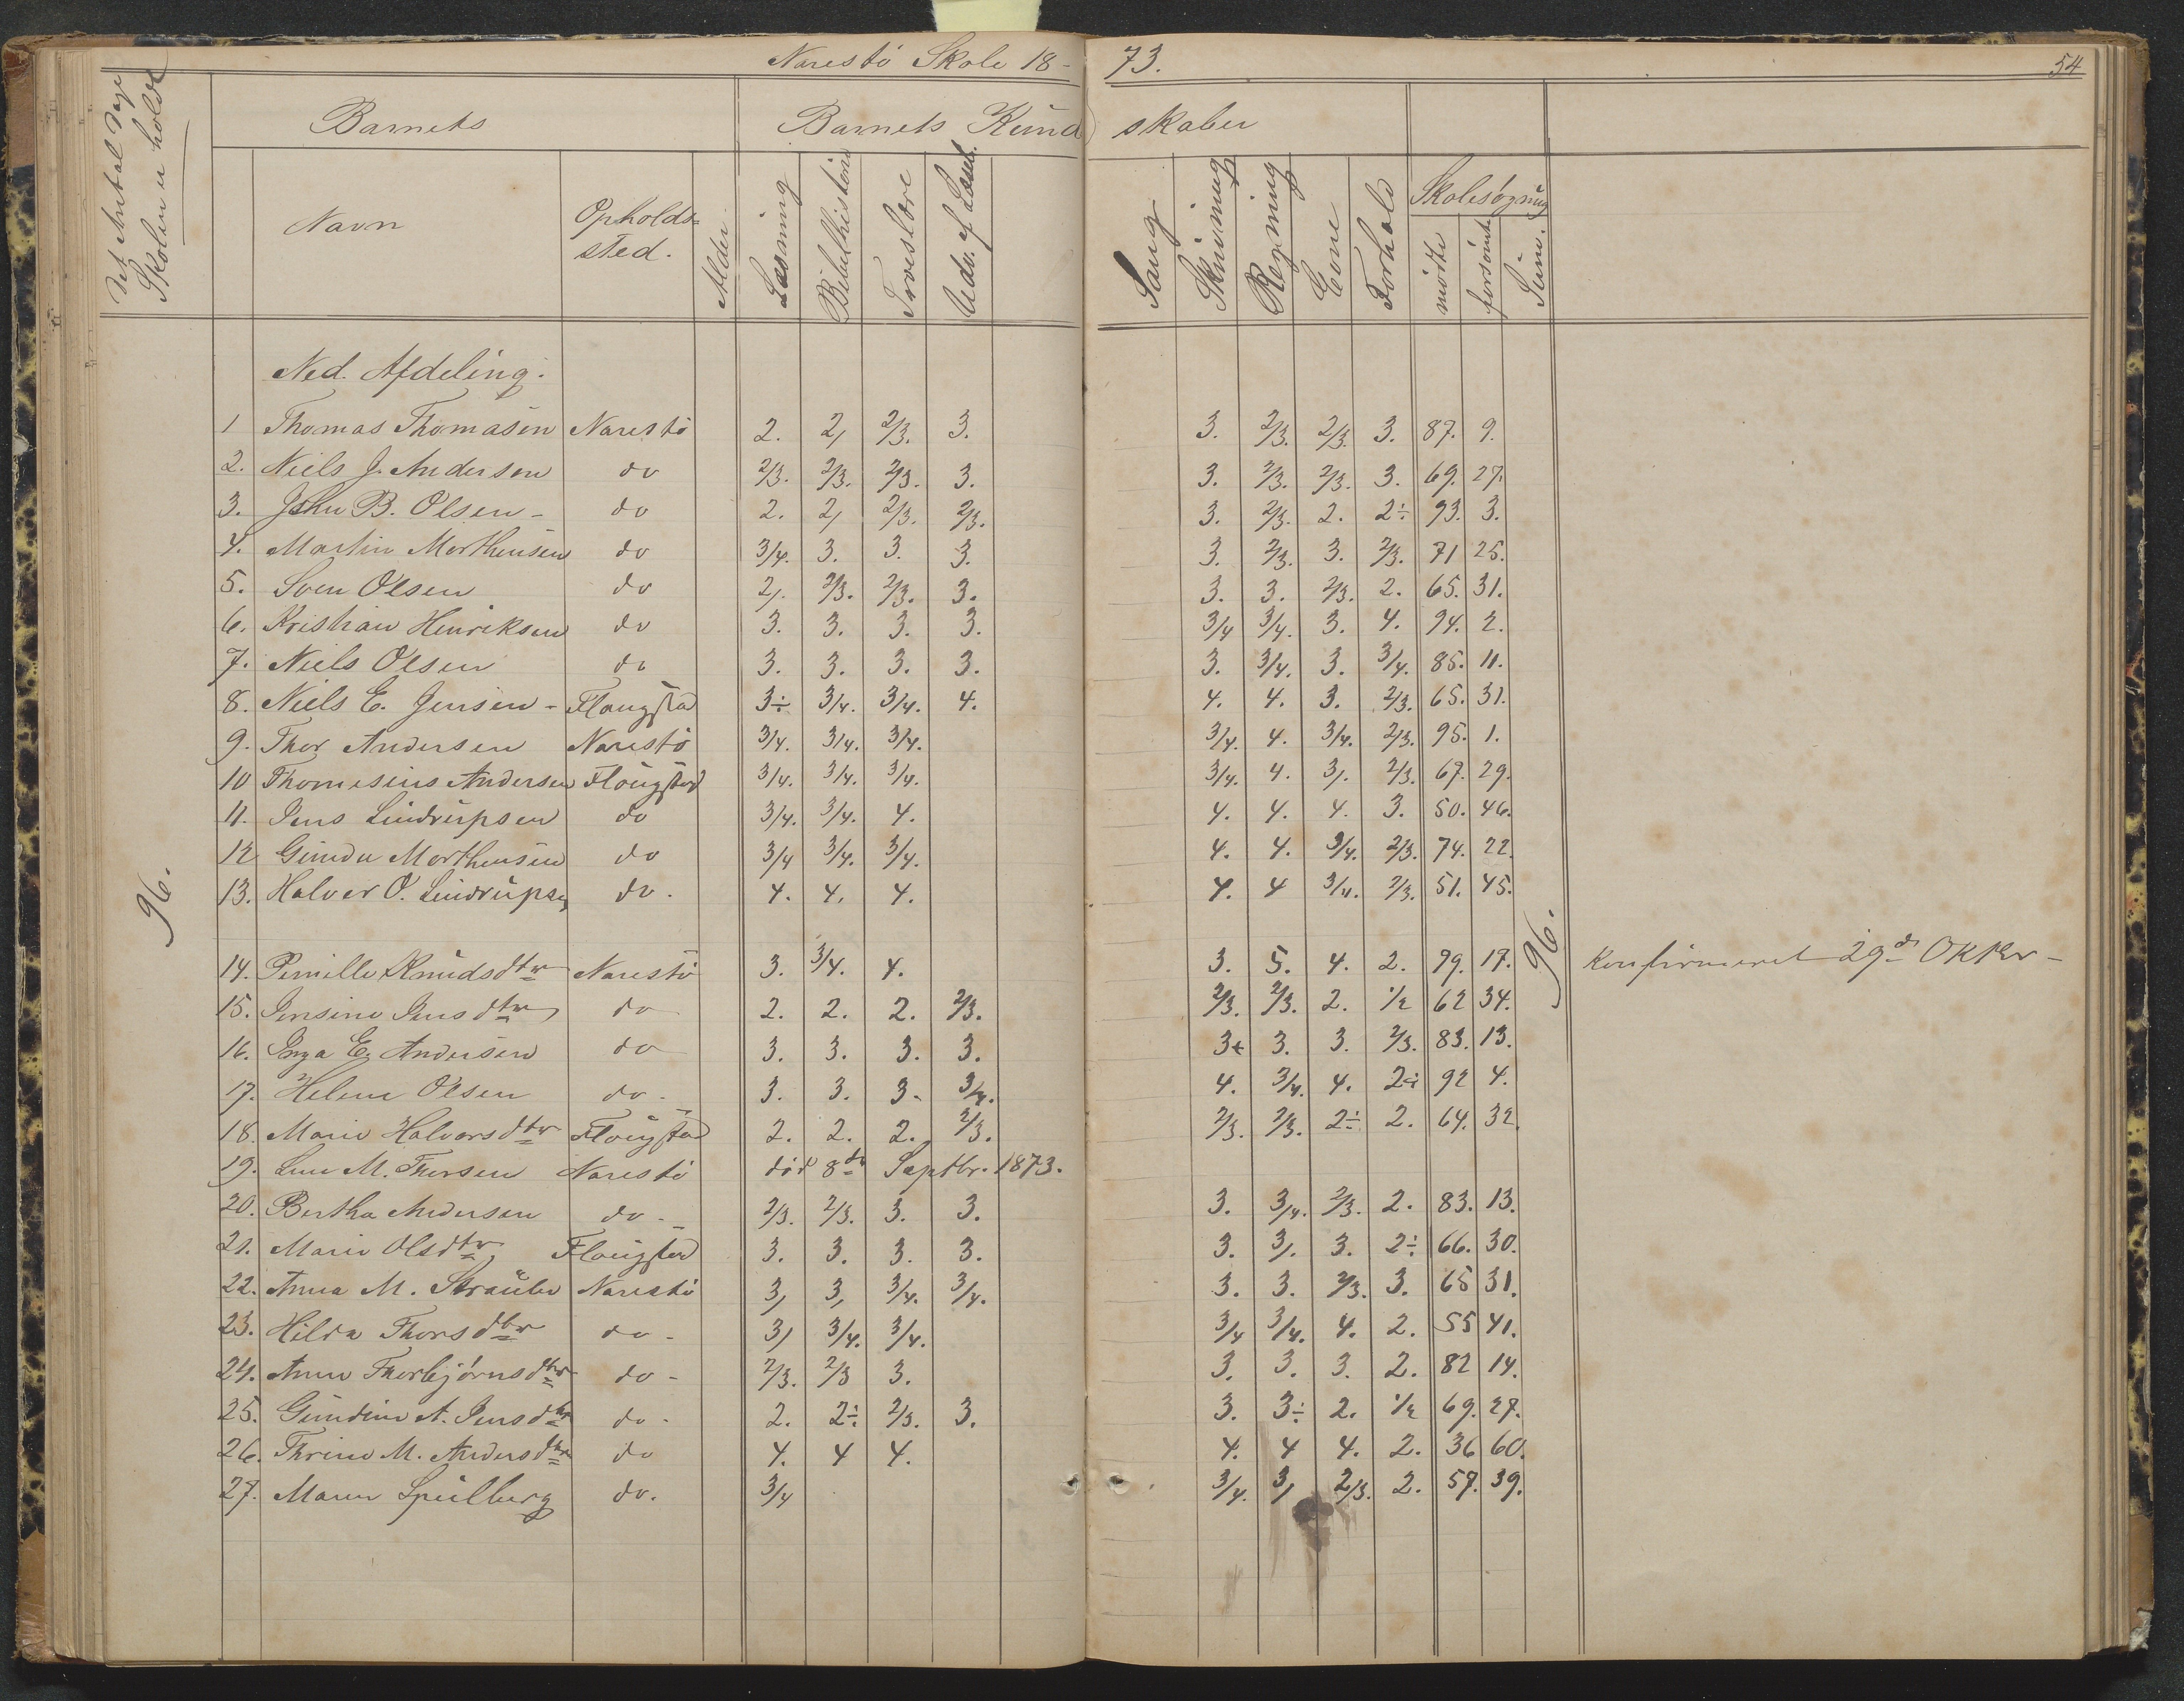 Narestö Skole 18-73. 54
Det Antal Dage
Skolen er holdt
Barnets Barnets Kund skaber
Navn Opholds- Alder Læsning Bibelhistorie Troeslære Udv. af Læseb. Sang Skrivning Regning Evne Forhold Skolesøgning
sted. mödte forsömte Sum.
Ned. Afdeling.
1 Thomas Thomasen Narestö 2. 2, 2/3. 3. 3. 2/3. 2/3. 3. 87. 9.
2. Niels J. Andersen do 2/3. 2/3. 2/3. 3. 3. 2/3. 2/3. 3. 69. 27.
3. John B. Olsen - do 2. 2, 2/3. 2/3. 3. 2/3. 2. 2÷ 93. 3.
4. Martin Morthensen do 3/4. 3. 3. 3. 3. 2/3. 3. 2/3. 71 25.
5. Sven Olsen do 2,. 2/3. 2/3. 3. 3. 3. 2/3. 2. 65. 31.
6. Kristian Henriksen do 3. 3. 3. 3. 3/4 3/4. 3. 4. 94. 2.
7. Niels Olsen do 3. 3. 3. 3. 3. 3/4. 3. 3/4. 85. 11.
8. Niels E. Jensen - Flougstad 3÷ 3/4. 3/4. 4. 4. 4. 3. 2/3. 65. 31.
9. Thor Andersen Narestö 3/4. 3/4. 3/4. 3/4. 4. 3/4. 2/3. 95. 1.
10 Thomesius Andersen Flougstad 3/4. 3/4. 3/4. 3/4. 4. 3/. 2/3. 67. 29.
11. Jens Lindrupsen do 3/4. 3/4. 4. 4. 4. 4. 3. 50. 46.
12 Gunder Morthensen do 3/4 3/4. 3/4. 4. 4. 3/4. 2/3. 74. 22.
96. 13. Halvor O. Lindrupsen do. 4. 4. 4. 4. 4 3/4. 2/3. 51. 45.
14. Pernille Knudsdtr Narestö 3. 3/4. 4. 3. 5. 4. 2. 79. 17. 96. Konfirmeret 29de Oktbr -
15. Jensine Jensdtr do 2. 2. 2. 2/3. 2/3. 2/3. 2. 1/2 62 34.
16. Inga E. Andersen do 3. 3. 3. 3. 3+ 3. 3. 2/3. 83. 13.
17. Helene Olsen do - 3. 3. 3. 3/4. 4. 3/4. 4. 2÷ 92 4.
18. Marie Halvorsdtr Flougstad 2. 2. 2. 2/3. 2/3. 2/3. 2÷ 2. 64. 32.
19. Lene M. Thorsen Narestö död 8de Septbr. 1873.
20. Bertha Andersen do - 2/3. 2/3. 3. 3. 3. 3/4. 2/3. 2. 83. 13.
21. Marie Olsdtr Flougstad 3. 3. 3. 3. 3. 3/. 3. 2÷ 66. 30.
22. Anna M. Straube Narestö 3, 3, 3/4. 3/4. 3. 3. 2/3. 3. 65 31.
23. Hilda Thorsdtr do - 3, 3/4. 3/4. 3/4 3/4. 4. 2. 55 41.
24. Anne Thorbjørnsdtr do - 2/3. 2/3 3. 3. 3. 3. 2. 82 14.
25. Gundine A. Jensdtr do - 2. 2÷ 2/3. 3. 3. 3÷ 2. 1/2 69. 27.
26. Thrine M. Andersdtr do 4. 4 4. 4. 4 4. 2. 36 60.
27. Maren Spilberg do. 3/4 3/4. 3, 2/3. 2. 57. 39.